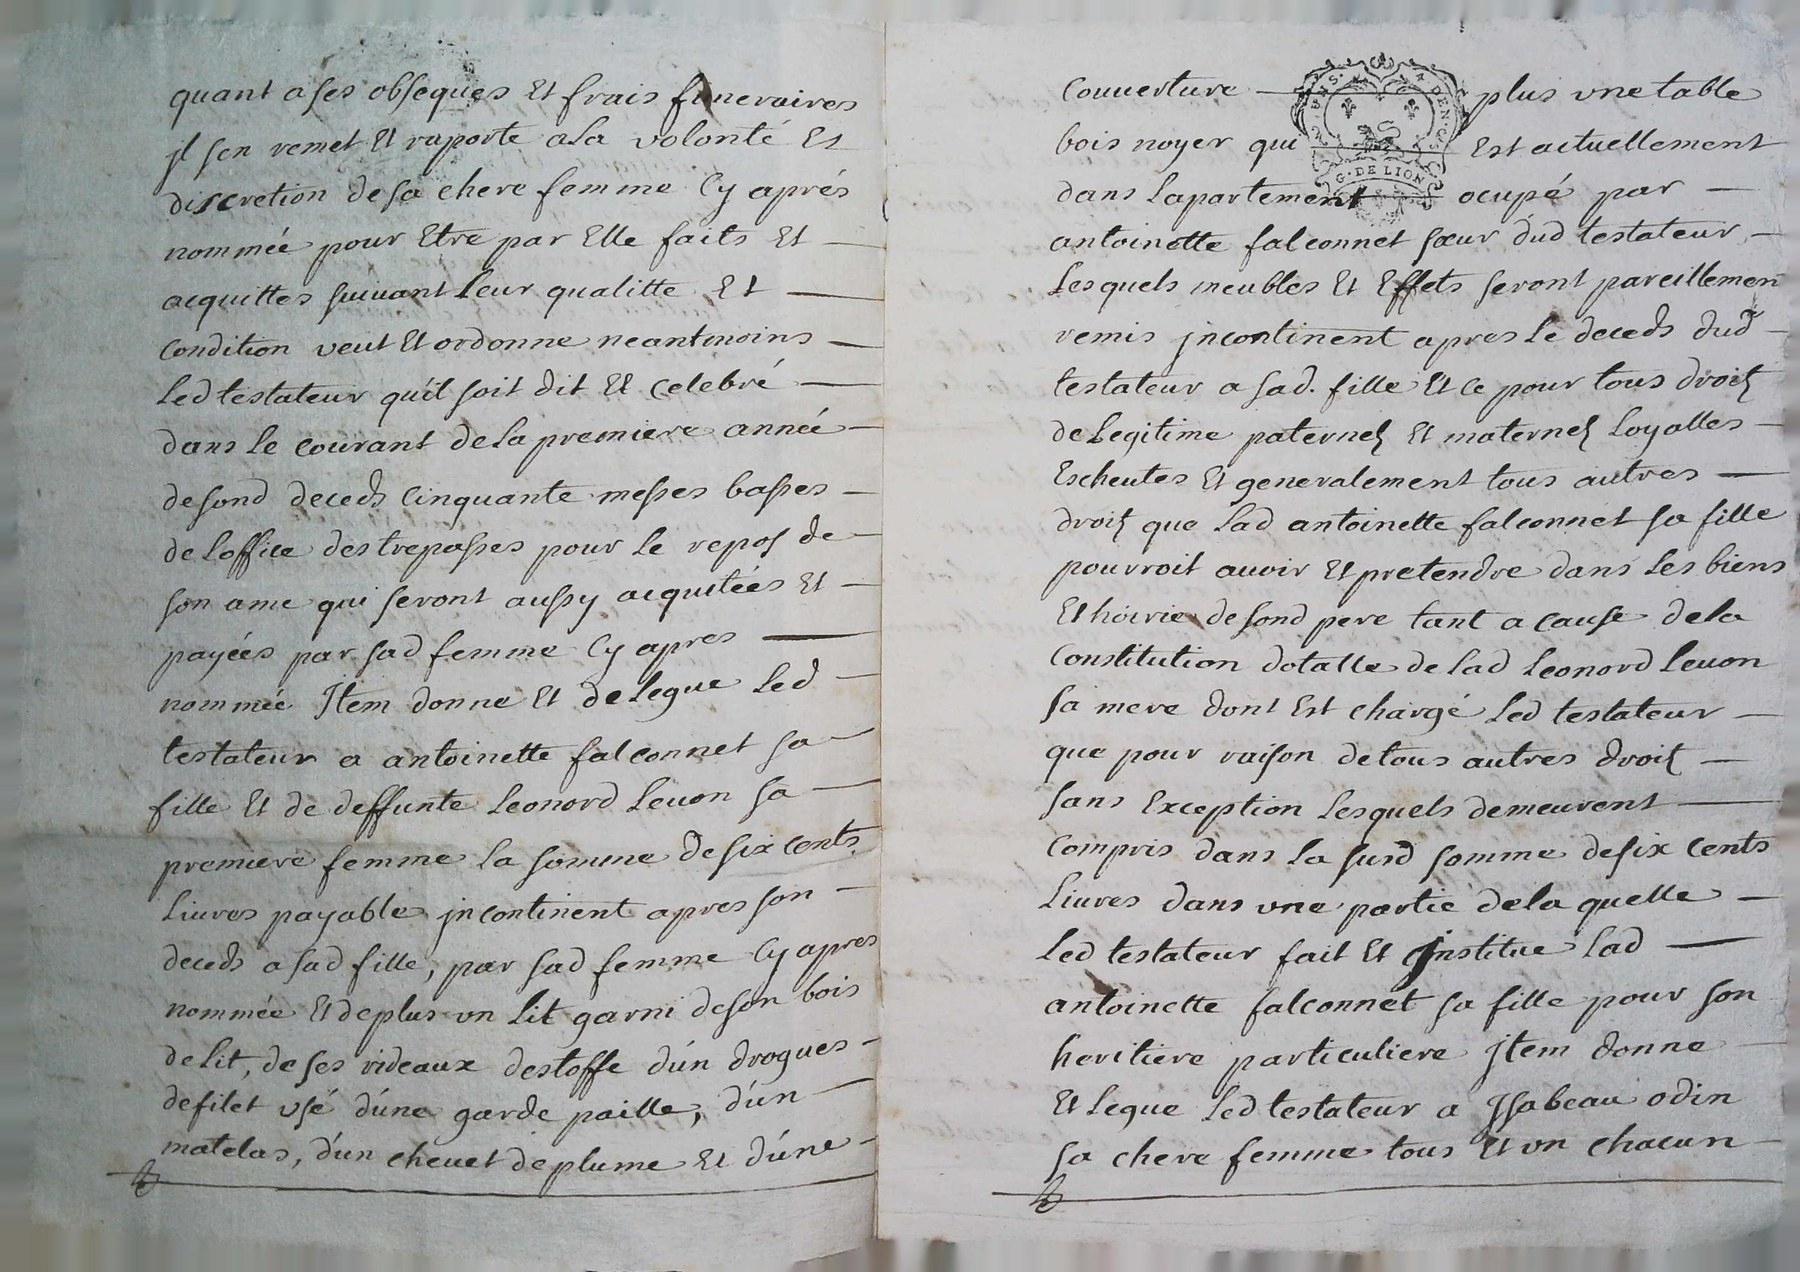 quant a ses obseques Et frais funeraires
jl sen remet Et raporte a la volonté Et
discretion de sa chere femme Cy aprés
nommée pour Etre par Elle faits Et
acquittes suivant leur qualitte Et
Condition veut Et ordonne neantmoins
led testateur qu'il soit dit Et celebré
dans le courant de la premiere année
de sond deceds Cinquante messes basses
de loffice des trepasses pour le repos de
son ame qui seront aussy acquitées Et
payées par sad femme Cy apres
nommée Jtem donne Et delegue led
testateur a antoinette falconnet sa
fille Et de deffunte Leonord Levon sa
premiere femme la somme de six Cents
Livres payable jncontinent apres son
deceds a sad fille, par sad femme Cy apres
nommée Et de plus un Lit garni de son bois
de lit, de ses rideaux destoffe dún drogues
de filet usé dúne garde paille, dún
matelas, dún chevet de plume Et dúne
Couverture plus une table
bois noyer qui Est actuellement
dans Lapartement ocupé par
antoinette falconnet sœur dud testateur
Lesquels meubles Et Effets seront pareillemen
remis jncontinent apres le deceds dud
testateur a sad. fille Et ce pour tous droits
de Legitime paternels Et maternels Loyalles
Escheutes Et generalement tous autres
droits que Lad antoinette falconnet sa fille
pourroit avoir Et pretendre dans les biens
Et hoirie de sond pere tant a cause de la
Constitution dotalle de lad Leonord Levon
sa mere dont Est chargé Led testateur
que pour raison de tous autres droits
sans Exception Lesquels demeurent
Compris dans la susd somme de six Cents
Livres dans une partie de la quelle
Led testateur fait Et jnstitue lad
antoinette falconnet sa fille pour son
heritiere particuliere Jtem donne
Et legue Led testateur a Jsabeau odin
sa chere femme tous Et un chacun
G. DE LION